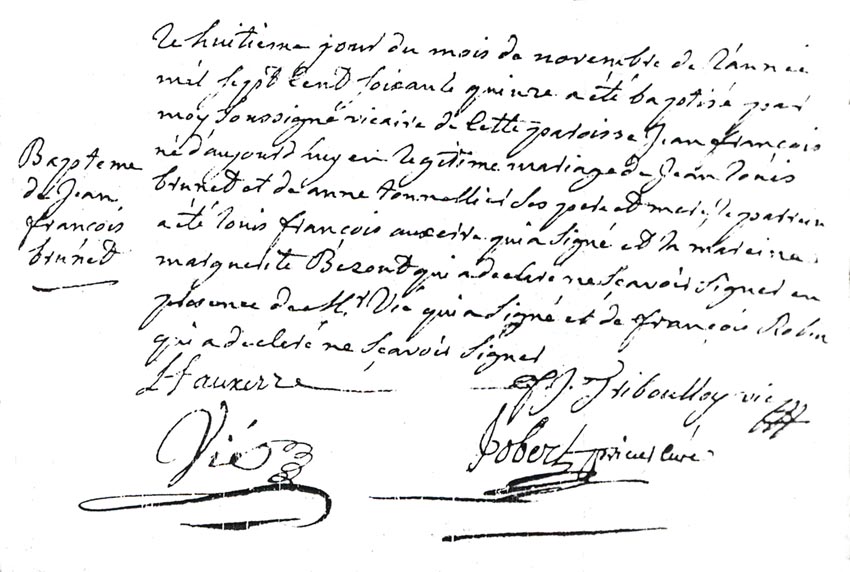 Le huitieme jour du mois de novembre de l'année
mil sept cent soixante quinze a été baptisé par
moy soussigné vicaire de cette paroisse Jean françois
né d'aujourd huy en legitime mariage de Jean louis
brunet et de anne tonnellier ses pere et mere, le parein
a été louis françois auxerre qui a signé et la mareine
marguerite Bezout qui a declaré ne sçavoir signer en
présence de Mr. Vié qui a signé et de françois Robin
qui a declaré ne sçavoir signer
Bapteme
de Jean
françois
brunet
L f auxerre
f. J. Triboulloy vic
Vié
Jobert prieur curé